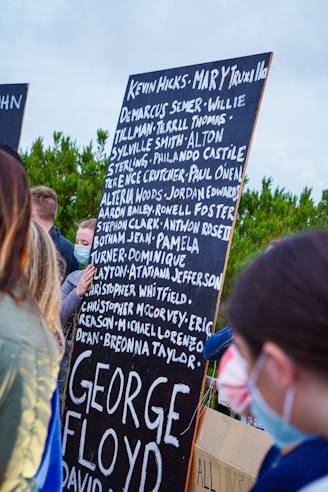 HN
KEVIN HICKS · MARY TRUXILLO
DEMARCUS SEMER · WILLIE
TILLMAN · TERRILL THOMAS ·
SYLVILLE SMITH · ALTON
STERLING · PHILANDO CASTILE
TERENCE CRUTCHER · PAUL OWENS
ALTERIA WOODS · JORDAN EDWARDS
AARON BAILEY · ROWELL FOSTER
STEPHON CLARK · ANTWON ROSE II
BOTHAM JEAN · PAMELA
TURNER · DOMINIQUE
CLAYTON · ATATIANA JEFFERSON
CHRISTOPHER WHITFIELD ·
CHRISTOPHER MCCORVEY · ERIC
REASON · MICHAEL LORENZO
DEAN · BREONNA TAYLOR ·
GEORGE
FLOYD
DAVID
ALL